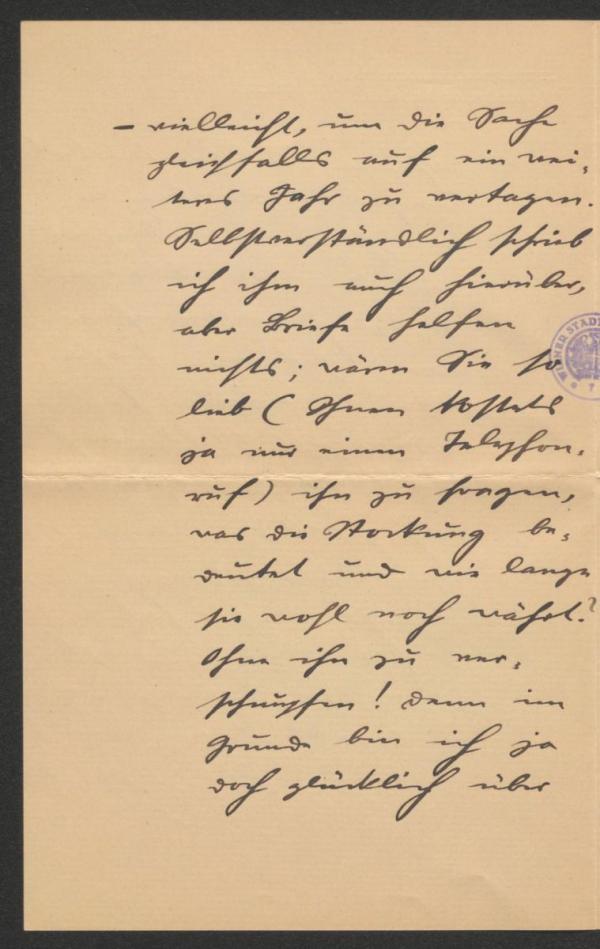 – vielleicht, um die Sache
gleichfalls auf ein wei-
teres Jahr zu vertagen.
Selbstverständlich schrieb
ich ihm auch hierüber,
aber Briefe helfen
nichts; wären Sie so
lieb (Ihnen kostets
ja nur einen Telephon-
ruf) ihn zu fragen,
was die Stockung be-
deutet und wie lange
sie wohl noch währt?
Ohne ihn zu ver-
schnupfen! denn im
Grunde bin ich ja
doch glücklich über
WIENER STAD